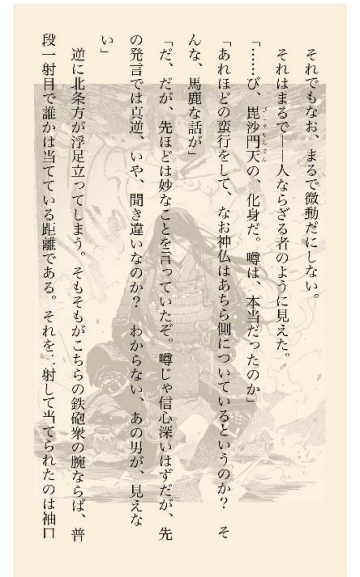 それでもなお、まるで微動だにしない。
それはまるで――人ならざる者のように見えた。
「……び、毘沙門天の、化身だ。噂は、本当だったのか」
「あれほどの蛮行をして、なお神仏はあちら側についているというのか？　そ
んな、馬鹿な話が」
「だ、だが、先ほどは妙なことを言っていたぞ。噂じゃ信心深いはずだが、先
の発言では真逆、いや、聞き違いなのか？　わからない、あの男が、見えな
い」
逆に北条方が浮足立ってしまう。そもそもがこちらの鉄砲衆の腕ならば、普
段一射目で誰かは当てている距離である。それを二射して当てられたのは袖口